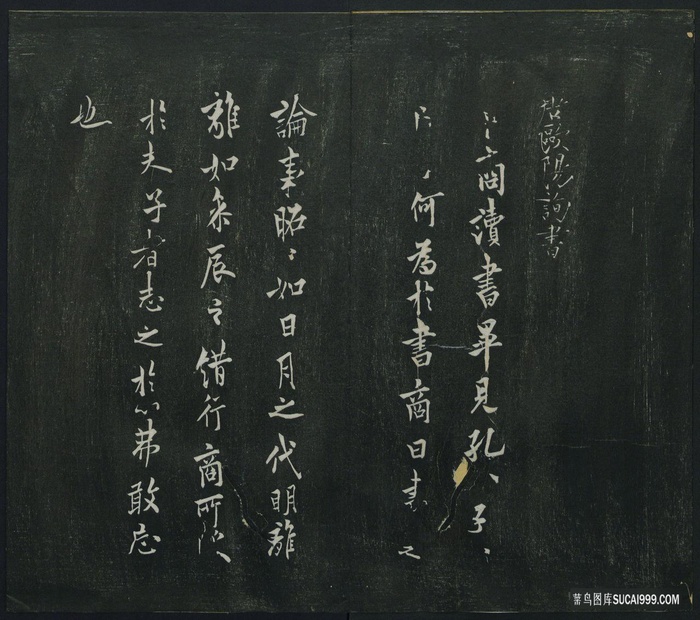 唐歐陽詢書
卜商讀書畢見孔〻子〻
何為於書商曰書之
論事昭〻如日月之代明離
離如參辰之錯行商所受
於夫子者志之於心弗敢忘
也
菜鸟图库SUCAI999.COM